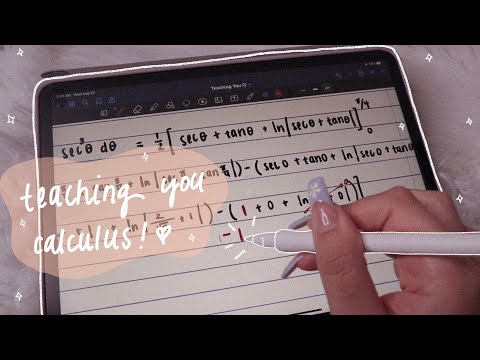 Teaching You
sec³θ dθ = ½[ secθ + tanθ + ln|secθ + tanθ| ]
π/4
0
ln| an π/4|) - (sec0 + tan0 + ln|sec0 + tan
+ 1 ln| 2 + 1|) - (1 + 0 + ln 0|)]
- 1
teaching you
calculus! ♡